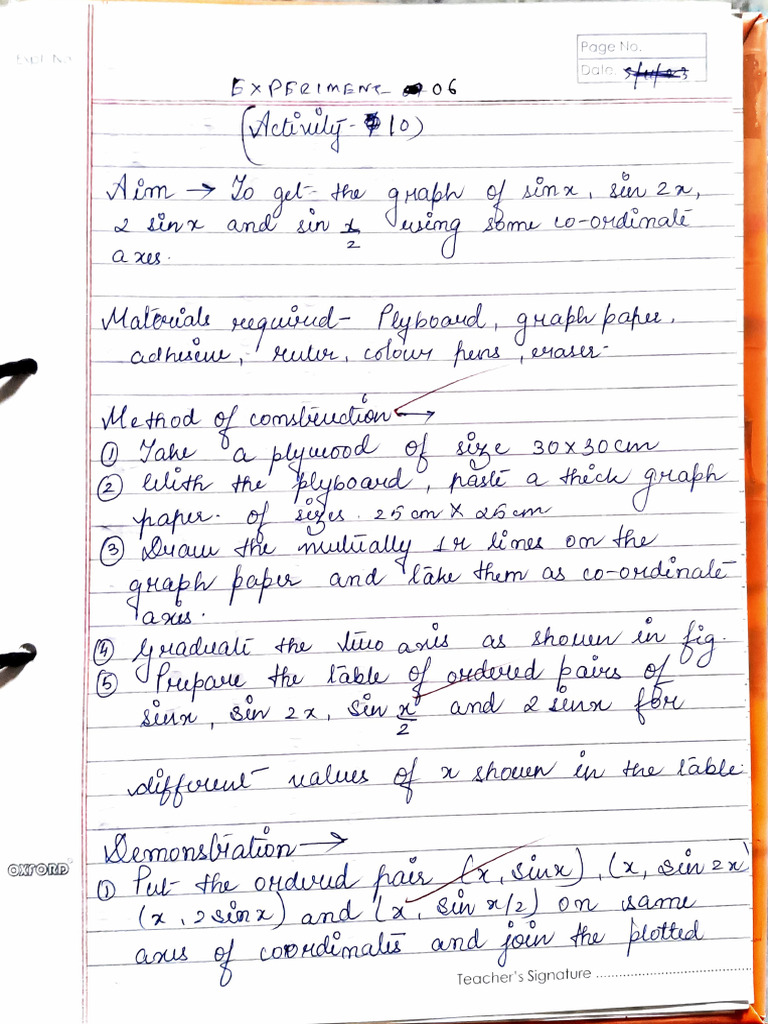 Expt. No.
Page No.
Date.
EXPERIMENT 06
(Activity - 10)
Aim → To get the graph of sin x, sin 2x,
2 sin x and sin x/2 using some co-ordinate
axes.
Materials required - Plyboard, graph paper,
adhesive, ruler, colour pens, eraser.
Method of construction →
① Take a plywood of size 30 x 30 cm
② With the plyboard, paste a thick graph
paper. of sizes. 25 cm X 25 cm
③ Draw the mutually ⊥r lines on the
graph paper and take them as co-ordinate
axis.
④ Graduate the two axis as shown in fig.
⑤ Prepare the table of ordered pairs of
sinx, sin 2x, sin x/2 and 2 sinx for
different values of x shown in the table.
Demonstration →
① Put the ordered pair (x, sinx), (x, sin 2x)
(x, 2 sinx) and (x, sin x/2) on same
axis of coordinates and join the plotted
OXFORD
Teacher's Signature